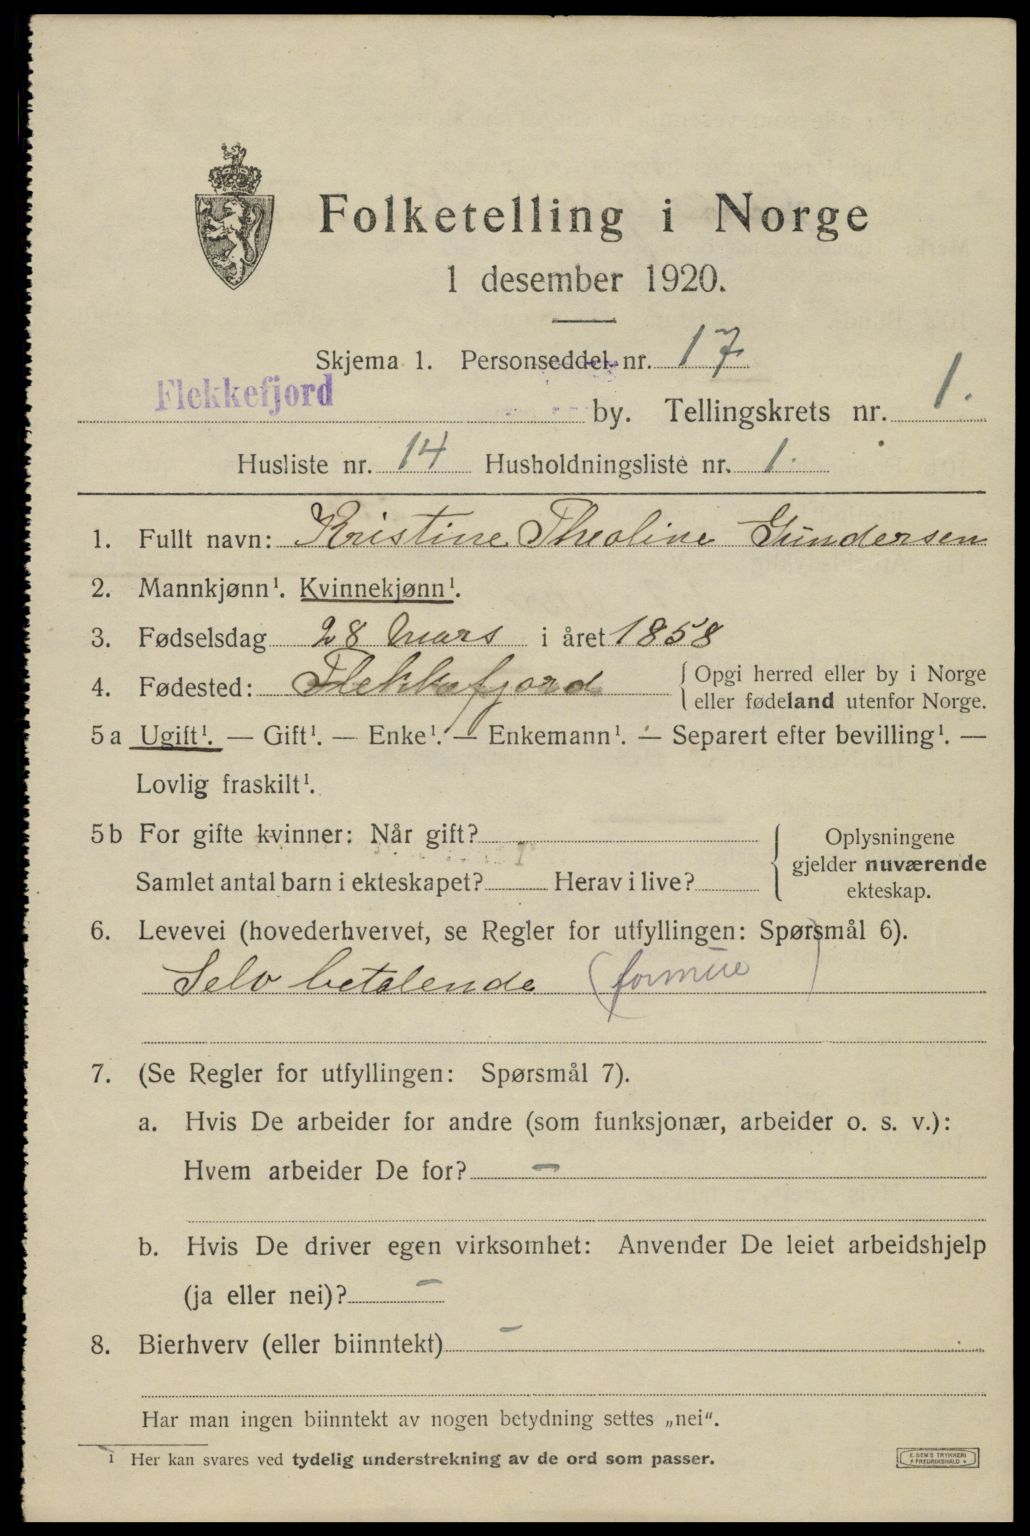 Folketelling i Norge
1 desember 1920.
Skjema 1. Personseddel nr. 17
Flekkefjord by. Tellingskrets nr. 1.
Husliste nr. 14 Husholdningsliste nr. 1.
1. Fullt navn: Kristine Theoline Gundersen
2. Mannkjønn¹. Kvinnekjønn¹.
3. Fødselsdag 28 Mars i året 1858
4. Fødested: Flekkefjord { Opgi herred eller by i Norge
eller fødeland utenfor Norge.
5a Ugift¹. — Gift¹. — Enke¹. — Enkemann¹. — Separert efter bevilling¹. —
Lovlig fraskilt¹.
5b For gifte kvinner: Når gift?
Samlet antal barn i ekteskapet? Herav i live?
{ Oplysningene
gjelder nuværende
ekteskap.
6. Levevei (hovederhvervet, se Regler for utfyllingen: Spørsmål 6).
Selv betalende (formue)
7. (Se Regler for utfyllingen: Spørsmål 7).
a. Hvis De arbeider for andre (som funksjonær, arbeider o. s. v.):
Hvem arbeider De for? —
b. Hvis De driver egen virksomhet: Anvender De leiet arbeidshjelp
(ja eller nei)? —
8. Bierhverv (eller biinntekt) —
Har man ingen biinntekt av nogen betydning settes „nei“.
¹ Her kan svares ved tydelig understrekning av de ord som passer.
E. SEM'S TRYKKERI
FREDRIKSHALD